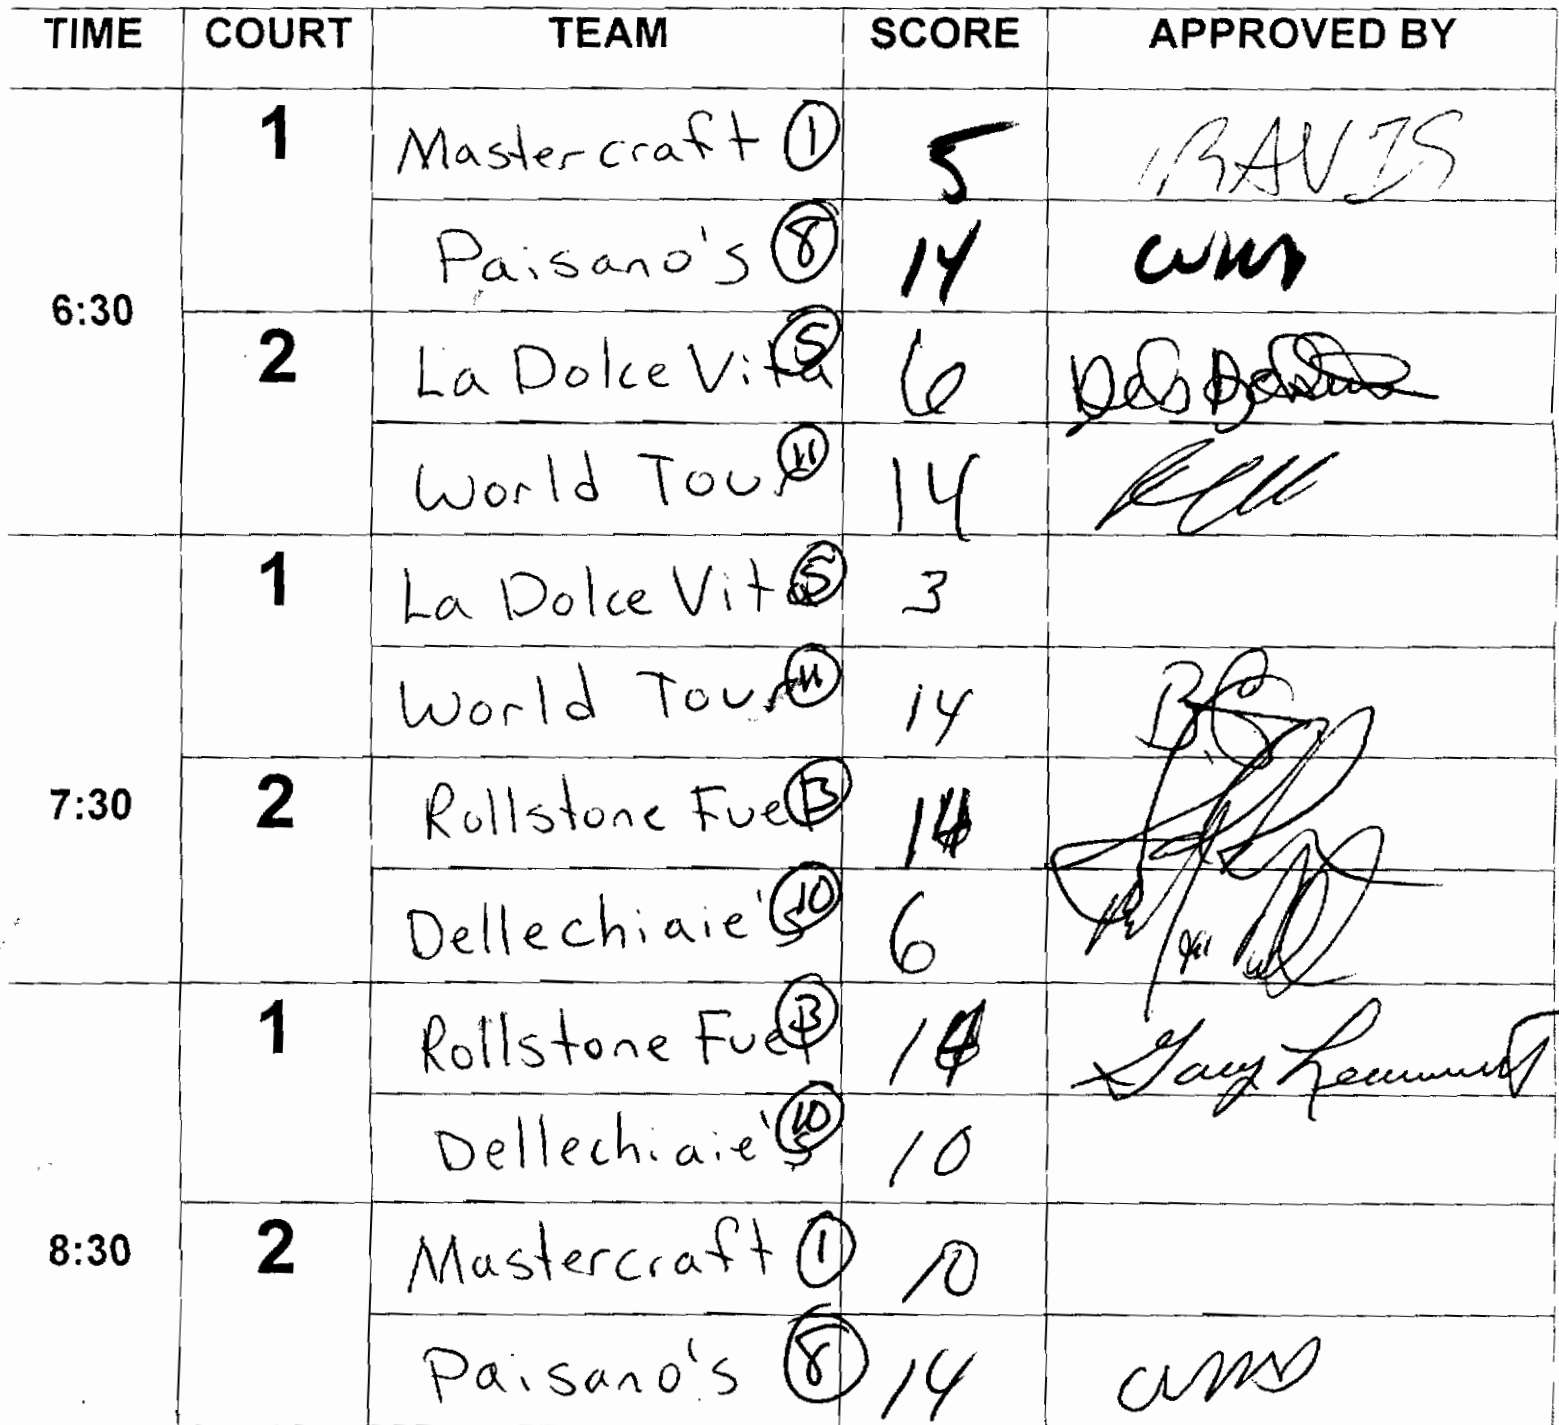 TIME COURT TEAM SCORE APPROVED BY
6:30 1 Mastercraft 1 5 TRAVIS
Paisano's 8 14
2 La Dolce Vita 5 6
World Tour 11 14
7:30 1 La Dolce Vita 5 3
World Tour 11 14
2 Rollstone Fuel 14
Dellechiaie's 10 6
8:30 1 Rollstone Fuel 14 Gary
Dellechiaie's 10 10
2 Mastercraft 1 10
Paisano's 8 14